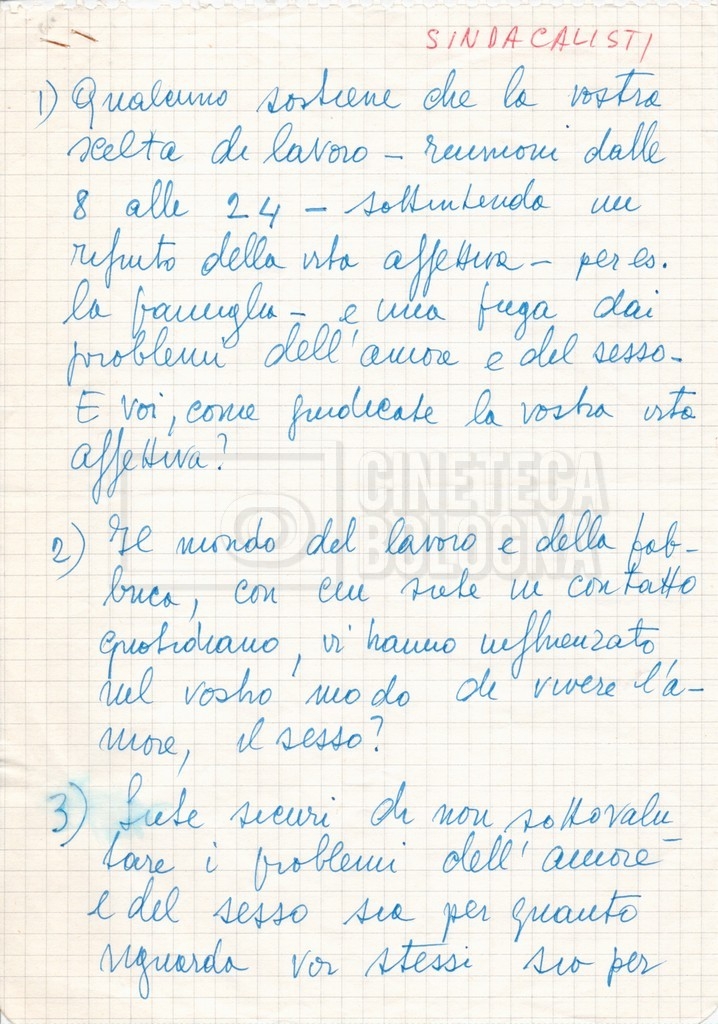 SINDACALISTI
1) Qualcuno sostiene che la vostra
scelta di lavoro – riunioni dalle
8 alle 24 – sottintenda un
rifiuto della vita affettiva – per es.
la famiglia – e una fuga dai
problemi dell'amore e del sesso.
E voi, come giudicate la vostra vita
affettiva?
CINETECA
BOLOGNA
2) Il mondo del lavoro e della fab-
brica, con cui siete in contatto
quotidiano, vi hanno influenzato
nel vostro modo di vivere l'a-
more, il sesso?
3) Siete sicuri di non sottovalu
tare i problemi dell'amore
e del sesso sia per quanto
riguarda voi stessi sia per